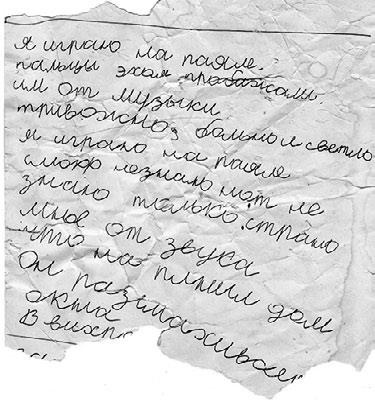 я играю на раяле.
пальцы эхом пробажали
им от музыки
тривожно, больно и светло
я играю на раяле
слофо незнаю нот не
знаю только страно
мне от звука
что на плнил дом
Он размахивает
окна
В вихр